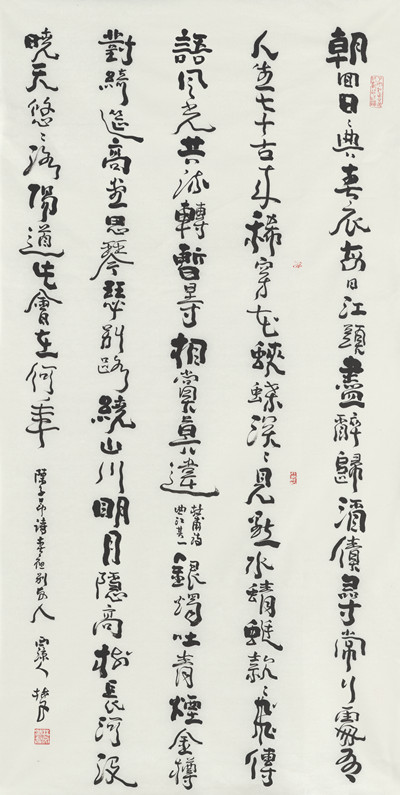 朝回日〻典春衣每日江頭盡醉歸酒債尋常行處有
人生七十古來稀穿花蛺蝶深〻見點水蜻蜓款〻飛傳
語風光共流轉暫時相賞莫違
杜甫詩
曲江其一
銀燭吐青煙金樽
對綺筵高堂思琴瑟別路繞山川明月隱高樹長河沒
曉天悠〻洛陽道此會在何年
陳子昂詩春夜別友人